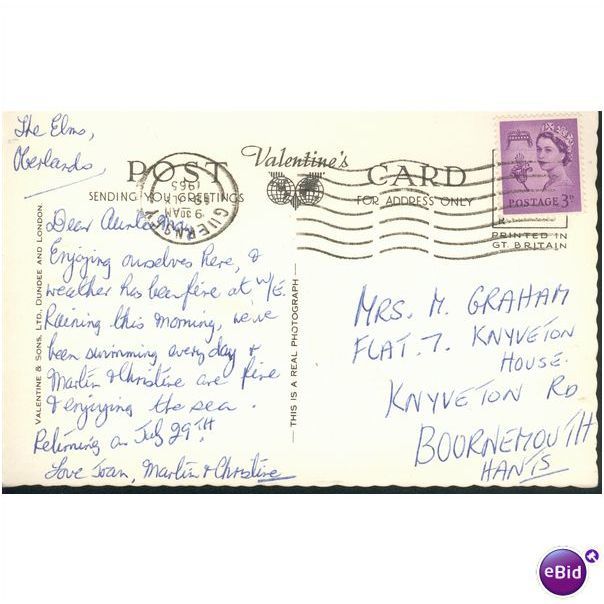 The Elms,
Oberlands,
POST Valentine's CARD
SENDING YOU GREETINGS FOR ADDRESS ONLY
GUERNSEY
9 30 AM
JLY
1965
POSTAGE 3D
PRINTED IN
GT. BRITAIN
VALENTINE & SONS, LTD., DUNDEE AND LONDON.
THIS IS A REAL PHOTOGRAPH
Dear Aunt
Enjoying ourselves here, &
weather has been fine at W/E.
Raining this morning, we've
been swimming every day &
Martin & Christine are fine
& enjoying the sea.
Returning on July 29TH.
Love Joan, Martin & Christine
MRS. M. GRAHAM
FLAT. 7. KNYVETON
HOUSE.
KNYVETON RD
BOURNEMOUTH
HANTS
eBid